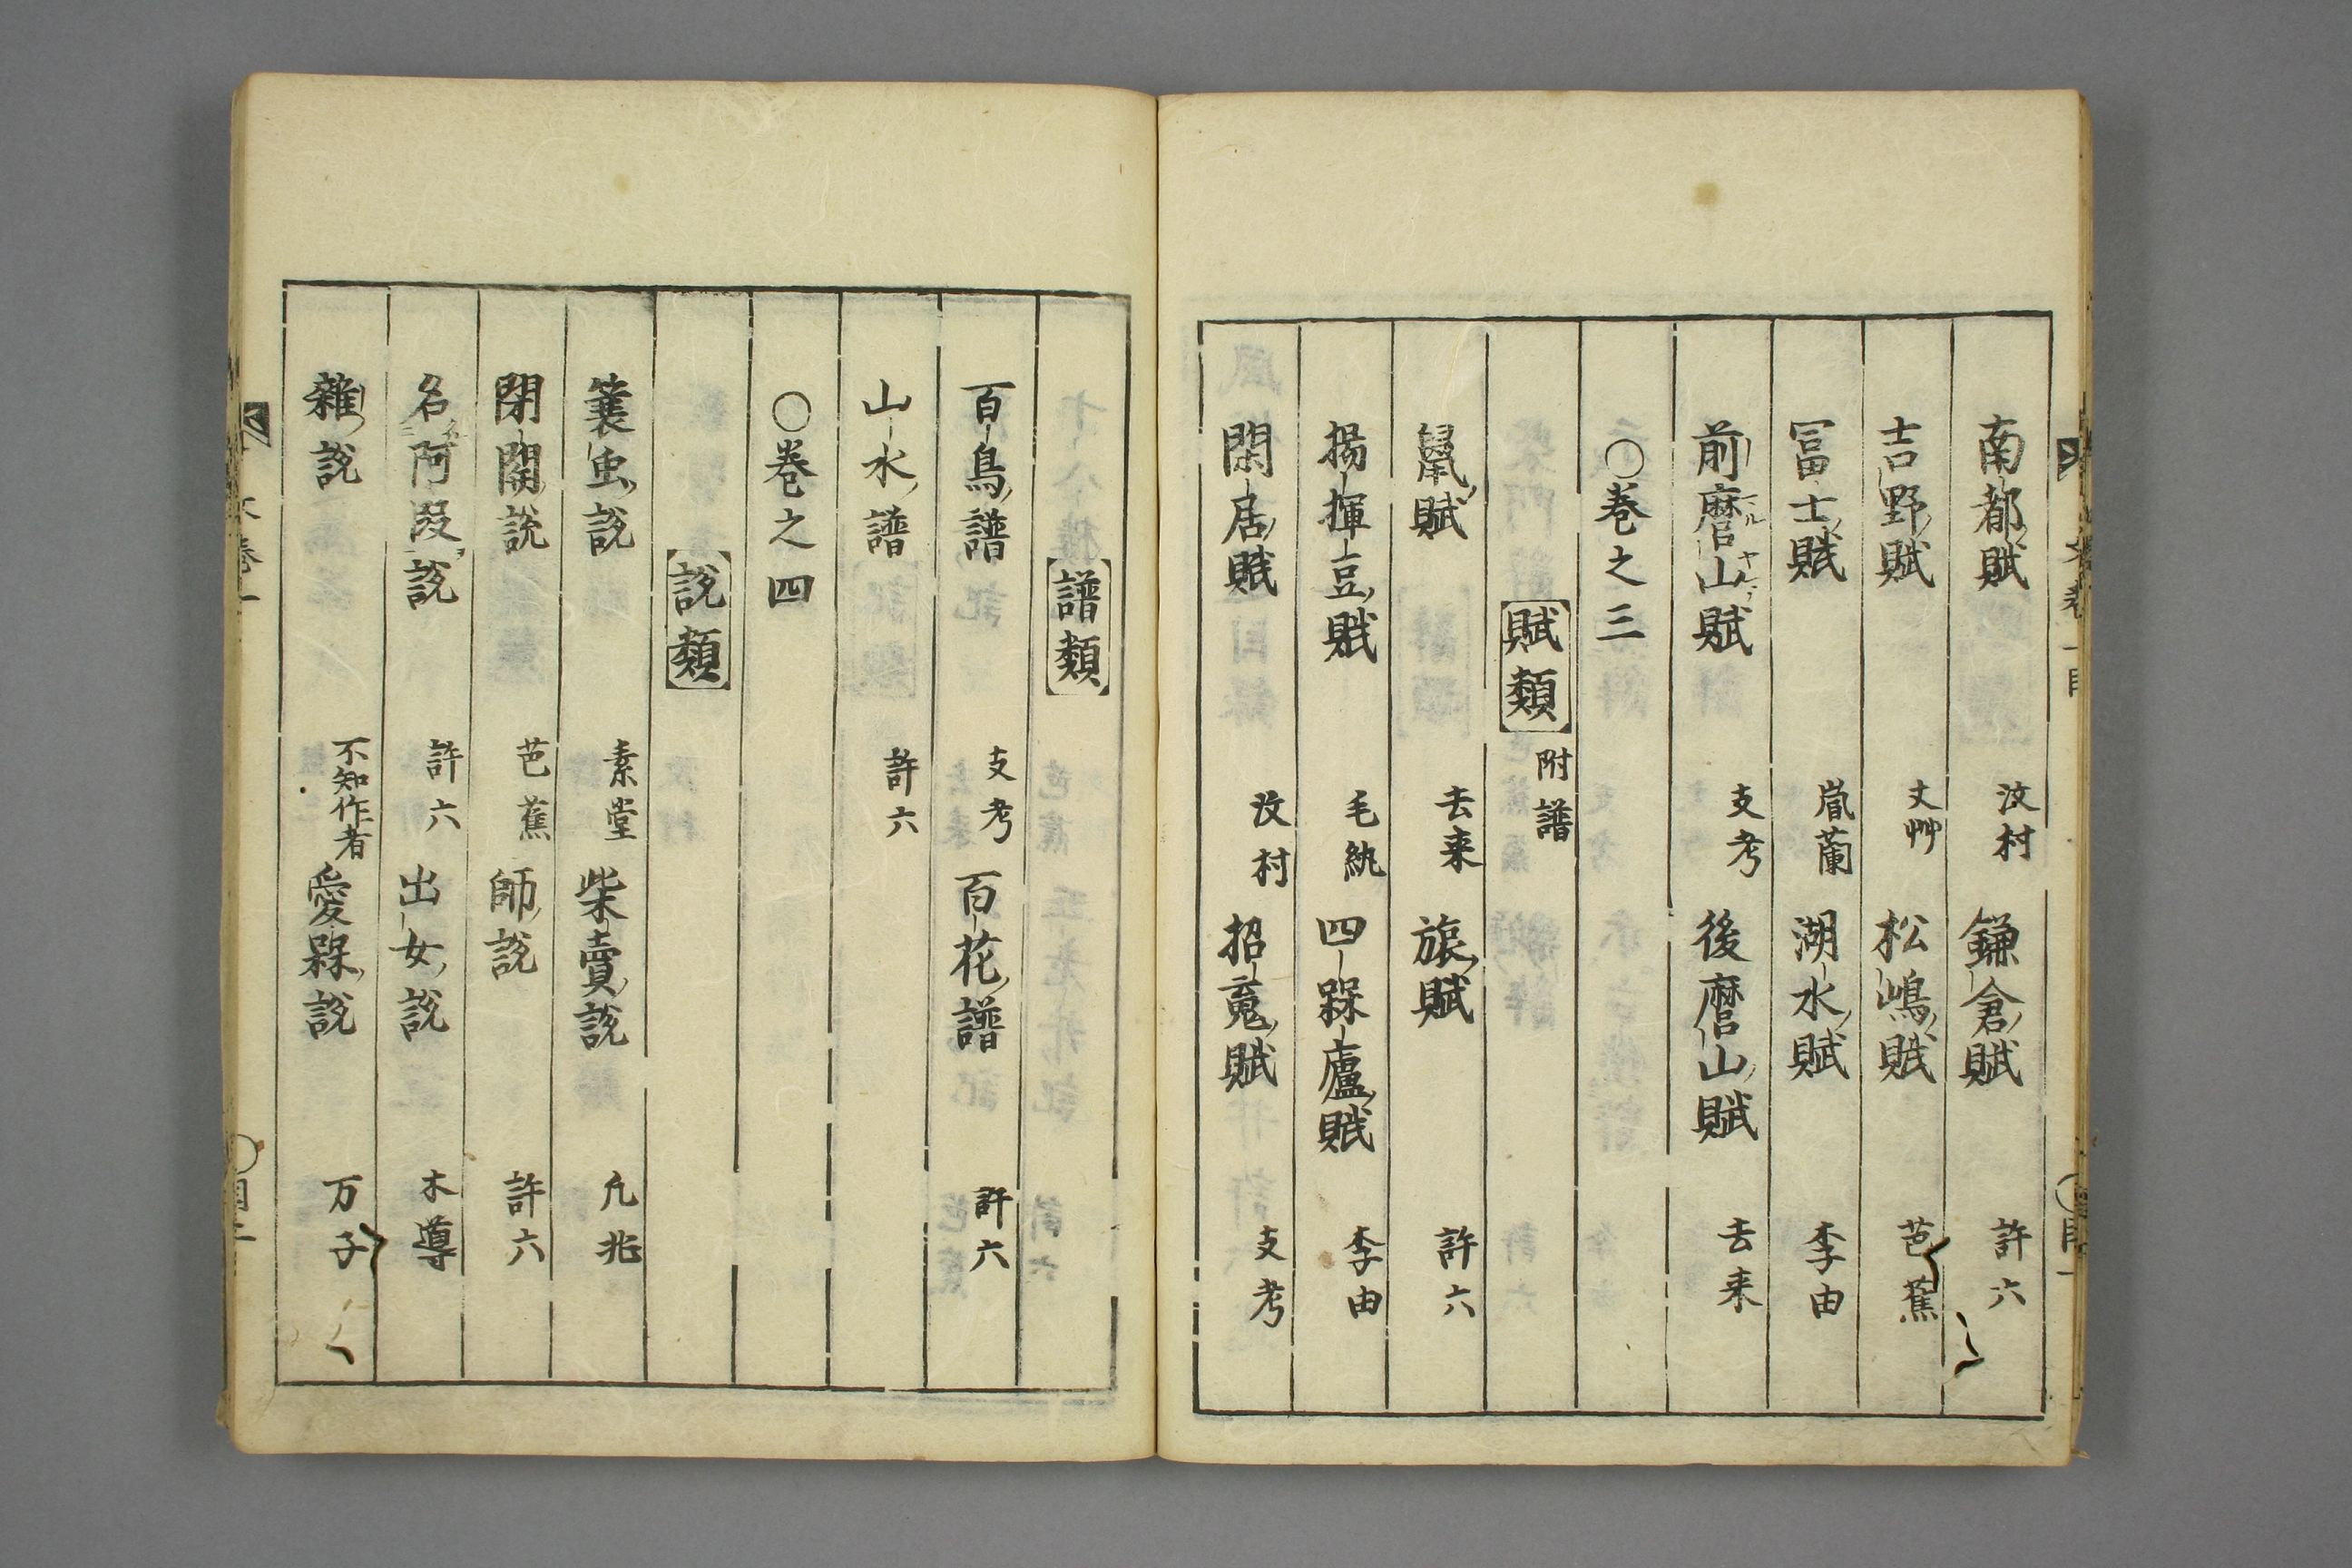 南都賦 汶村 鎌倉賦 許六
吉野賦 丈艸 松嶋賦 芭蕉
冨士賦 嵐蘭 湖水賦 李由
前麿山賦 支考 後麿山賦 去来
○巻之三
賦類 附譜
鼠賦 去来 旅賦 許六
揚揮豆賦 毛紈 四槑廬賦 李由
閑居賦 汶村 招䰟賦 支考
譜類
百鳥譜 支考 百花譜 許六
山水譜 許六
○巻之四
説類
簑虫説 素堂 柴賣説 凢兆
閉關説 芭蕉 師説 許六
名阿段説 許六 出女説 木導
雜説 不知作者 愛槑説 万子